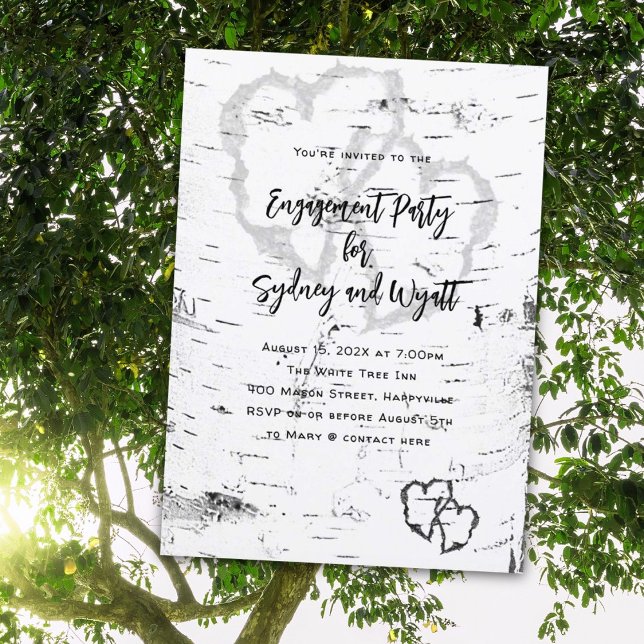 You're invited to the
Engagement Party
for
Sydney and Wyatt
August 15, 202X at 7:00pm
The White Tree Inn
400 Mason Street, Happyville
RSVP on or before August 5th
to Mary @ contact here